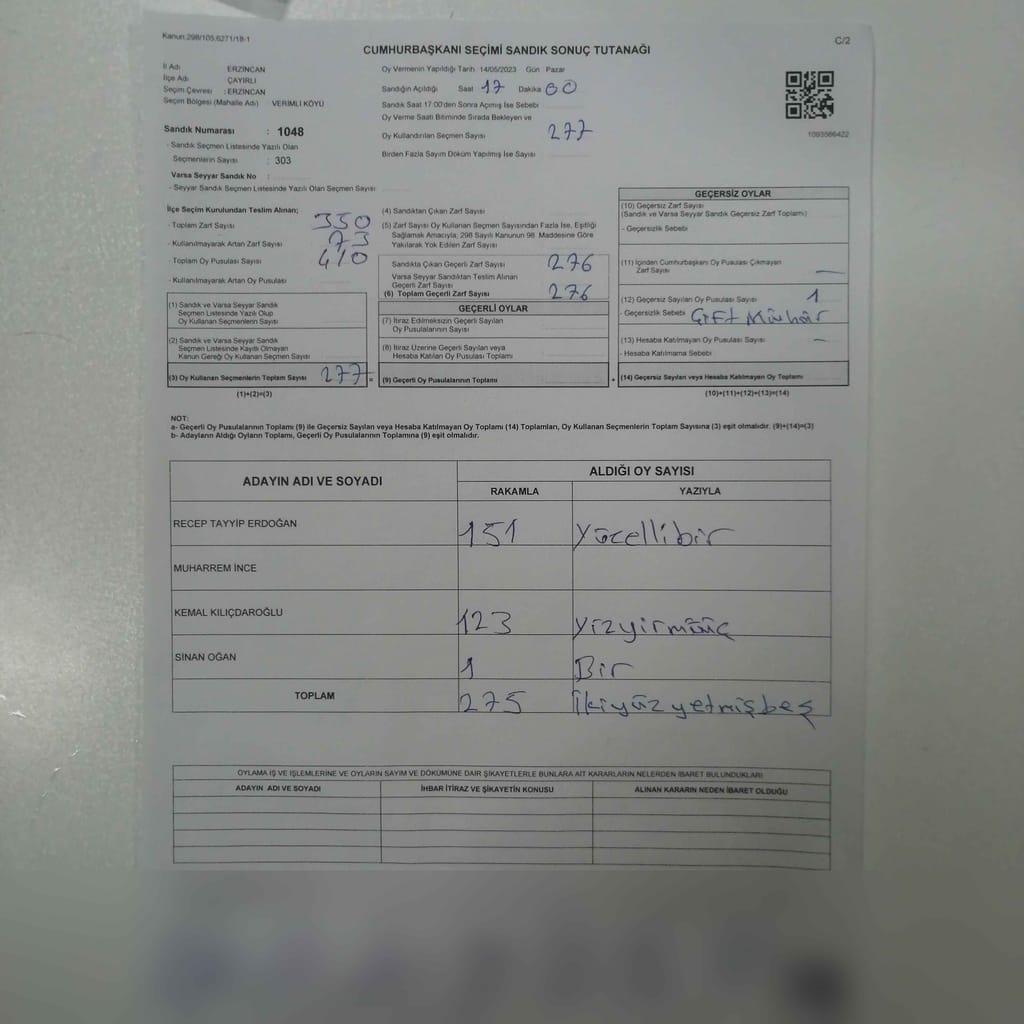 Kanun:298/105.6271/18-1
C/2
CUMHURBAŞKANI SEÇİMİ SANDIK SONUÇ TUTANAĞI
İl Adı ERZİNCAN
İlçe Adı ÇAYIRLI
Seçim Çevresi : ERZİNCAN
Seçim Bölgesi (Mahalle Adı) VERİMLİ KÖYÜ
Sandık Numarası : 1048
- Sandık Seçmen Listesinde Yazılı Olan
Seçmenlerin Sayısı : 303
Varsa Seyyar Sandık No :
- Seyyar Sandık Seçmen Listesinde Yazılı Olan Seçmen Sayısı
Oy Vermenin Yapıldığı Tarih 14/05/2023 Gün Pazar
Sandığın Açıldığı Saat 17 Dakika 00
Sandık Saat 17:00'den Sonra Açımış İse Sebebi
Oy Verme Saati Bitiminde Sırada Bekleyen ve
Oy Kullandırılan Seçmen Sayısı 277
Birden Fazla Sayım Döküm Yapılmış İse Sayısı
1093586422
İlçe Seçim Kurulundan Teslim Alınan;
- Toplam Zarf Sayısı 350
- Kullanılmayarak Artan Zarf Sayısı 73
- Toplam Oy Pusulası Sayısı 410
- Kullanılmayarak Artan Oy Pusulası
(1) Sandık ve Varsa Seyyar Sandık
Seçmen Listesinde Yazılı Olup
Oy Kullanan Seçmenlerin Sayısı
(2) Sandık ve Varsa Seyyar Sandık
Seçmen Listesinde Kayıtlı Olmayan
Kanun Gereği Oy Kullanan Seçmen Sayısı
(3) Oy Kullanan Seçmenlerin Toplam Sayısı 277 =
(1)+(2)=(3)
(4) Sandıktan Çıkan Zarf Sayısı
(5) Zarf Sayısı Oy Kullanan Seçmen Sayısından Fazla İse, Eşitliği
Sağlamak Amacıyla; 298 Sayılı Kanunun 98. Maddesine Göre
Yakılarak Yok Edilen Zarf Sayısı
Sandıkta Çıkan Geçerli Zarf Sayısı 276
Varsa Seyyar Sandıktan Teslim Alınan
Geçerli Zarf Sayısı
(6) Toplam Geçerli Zarf Sayısı 276
GEÇERLİ OYLAR
(7) İtiraz Edilmeksizin Geçerli Sayılan
Oy Pusulalarının Sayısı
(8) İtiraz Üzerine Geçerli Sayılan veya
Hesaba Katılan Oy Pusulası Toplamı
(9) Geçerli Oy Pusulalarının Toplamı +
GEÇERSİZ OYLAR
(10) Geçersiz Zarf Sayısı
(Sandık ve Varsa Seyyar Sandık Geçersiz Zarf Toplamı)
- Geçersizlik Sebebi
(11) İçinden Cumhurbaşkanı Oy Pusulası Çıkmayan
Zarf Sayısı —
(12) Geçersiz Sayılan Oy Pusulası Sayısı 1
- Geçersizlik Sebebi Çift Mühür
(13) Hesaba Katılmayan Oy Pusulası Sayısı —
- Hesaba Katılmama Sebebi
(14) Geçersiz Sayılan veya Hesaba Katılmayan Oy Toplamı
(10)+(11)+(12)+(13)=(14)
NOT:
a- Geçerli Oy Pusulalarının Toplamı (9) ile Geçersiz Sayılan veya Hesaba Katılmayan Oy Toplamı (14) Toplamları, Oy Kullanan Seçmenlerin Toplam Sayısına (3) eşit olmalıdır. (9)+(14)=(3)
b- Adayların Aldığı Oyların Toplamı, Geçerli Oy Pusulalarının Toplamına (9) eşit olmalıdır.
ADAYIN ADI VE SOYADI
ALDIĞI OY SAYISI
RAKAMLA YAZIYLA
RECEP TAYYİP ERDOĞAN 151 Yüzellibir
MUHARREM İNCE
KEMAL KILIÇDAROĞLU 123 Yizyirmüüç
SİNAN OĞAN 1 Bir
TOPLAM 275 İkiyüzyetmişbeş
OYLAMA İŞ VE İŞLEMLERİNE VE OYLARIN SAYIM VE DÖKÜMÜNE DAİR ŞİKAYETLERLE BUNLARA AİT KARARLARIN NELERDEN İBARET BULUNDUKLARI
ADAYIN ADI VE SOYADI İHBAR İTİRAZ VE ŞİKAYETİN KONUSU ALINAN KARARIN NEDEN İBARET OLDUĞU